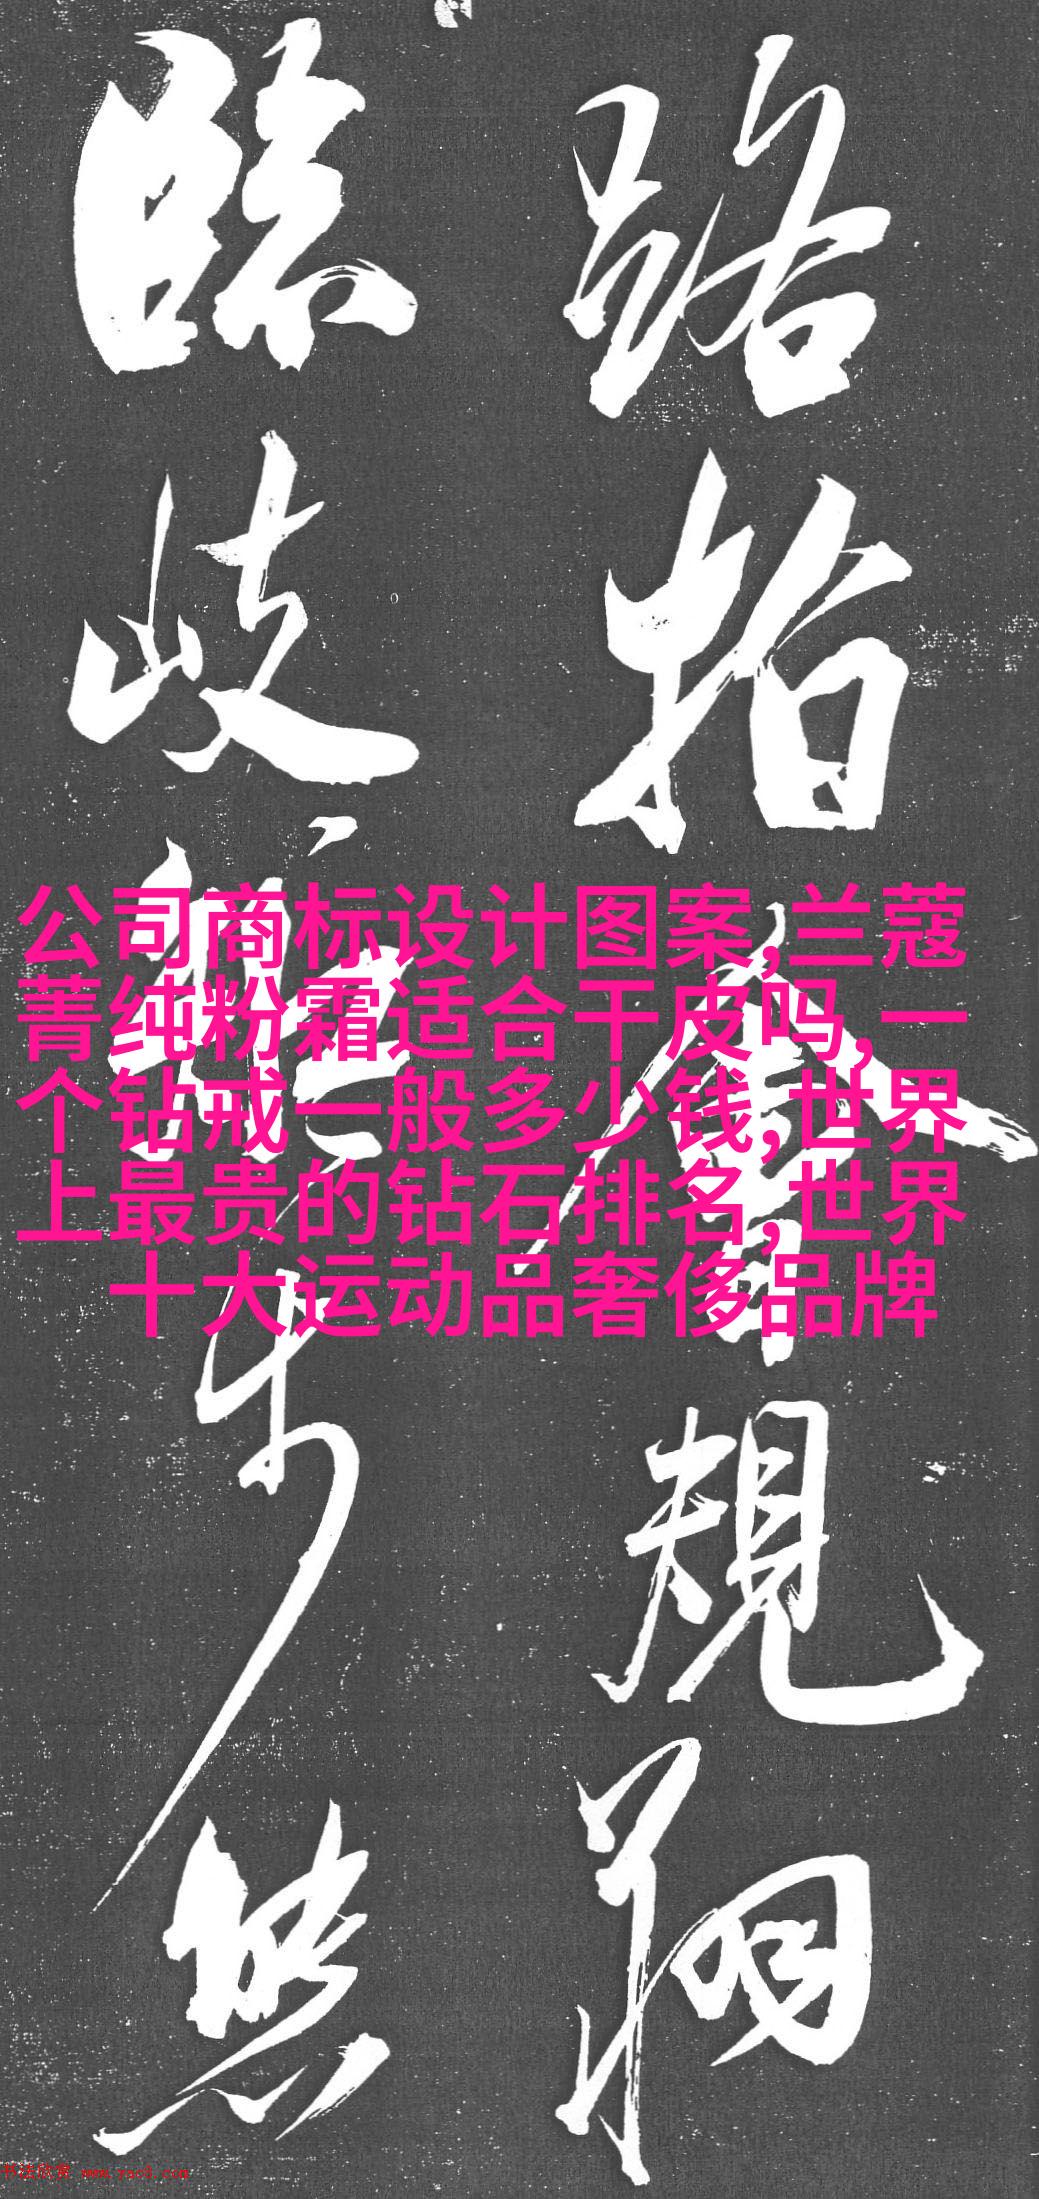 路指金規翔
臨歧舉步
公司商标设计图案,兰蔻
菁纯粉霜适合干皮吗,一
个钻戒一般多少钱,世界
上最贵的钻石排名,世界
十大运动品奢侈品牌
书法欣赏 www.yac8.com